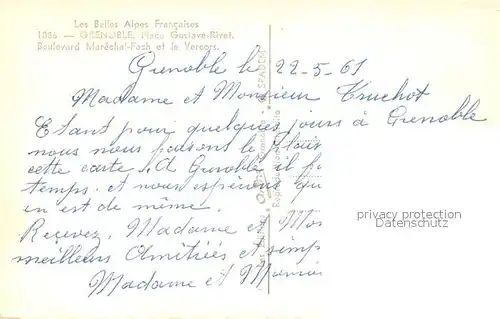 Les Belles Alpes Françaises
1086 — GRENOBLE. Place Gustave-Rivet.
Boulevard Maréchal-Foch et le Vercors.
Grenoble le 22-5-61
Madame et Monsieur Truchot
Etant pour quelques jours à Grenoble
nous nous faisons le plais
cette carte. A Grenoble il f
temps. et nous espérons qu
en est de même.
Recevez, Madame et Mon
meilleures Amitiés et simp
Madame et Monsie
privacy protection
www.ansichtskartenversand.com
SPADEM